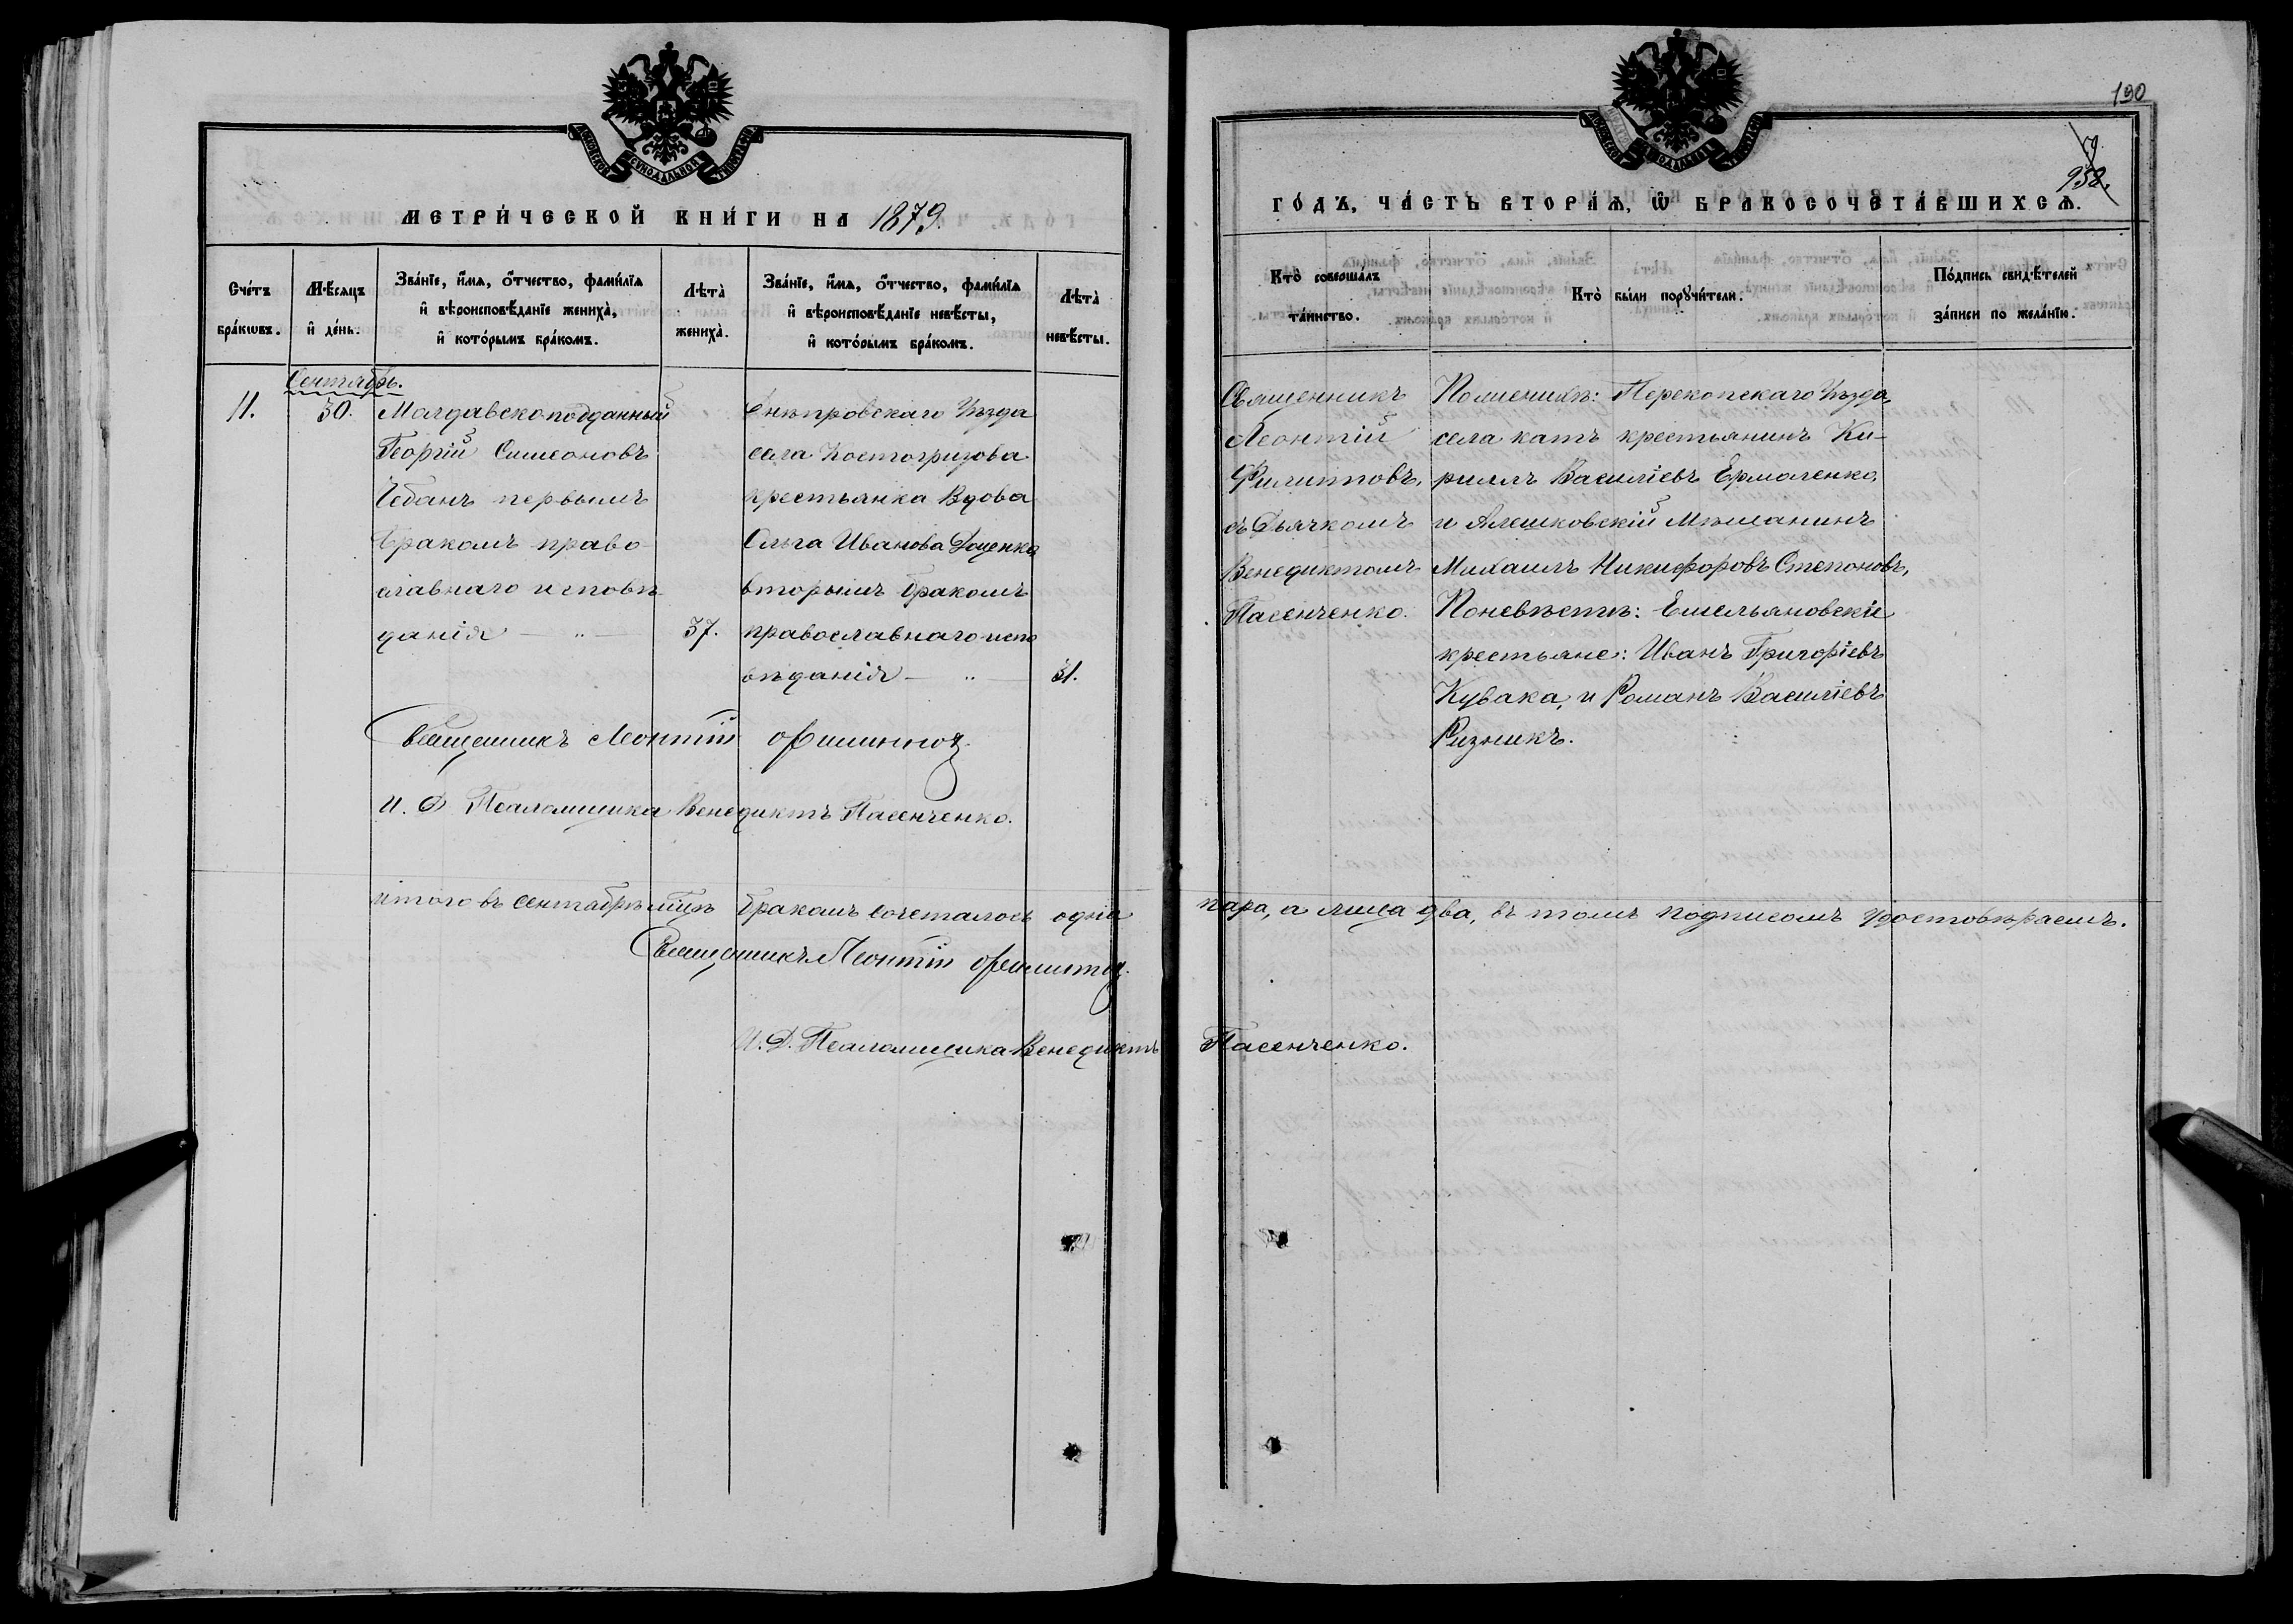 190
79
952.
МОСКОВСКОЙ СѴНОДАЛЬНОЙ ТИПОГРАФІИ
МЕТРИ́ЧЕСКОЙ КНИ́ГИ НА 1879.
ГО́ДЪ, ЧА́СТЬ ВТОРА́Ѧ, Ѡ҆ БРАКОСОЧЕТА́ВШИХСѦ.
Сче́тъ бра́кѡвъ.
Мѣ́сѧцъ и҆ де́нь.
Зва́нїе, и҆́мѧ, ѻ҆́тчество, фами́лїѧ и҆ вѣроисповѣ́данїе жениха̀, и҆ кото́рымъ бра́комъ.
Лѣта̀ жениха̀.
Зва́нїе, и҆́мѧ, ѻ҆́тчество, фами́лїѧ и҆ вѣроисповѣ́данїе невѣ́сты, и҆ кото́рымъ бра́комъ.
Лѣта̀ невѣ́сты.
Кто̀ соверша́лъ та́инство.
Кто̀ бы́ли порꙋчи́тели.
По́дпись свидѣ́телей за́писи по жела́нїю.
Сентябрь.
11.
30.
Молдавскоподданный
Георгій Симеоновъ
Чебанъ первымъ
бракомъ право-
славнаго исповѣ
данія — „ —
37.
Днѣпровскаго Уѣзда
села Костогризова
крестьянка Вдова
Ольга Иванова Доценко
вторымъ бракомъ
православнаго испо
вѣданія — „ —
31.
Священникъ
Леонтій
Филиптовъ,
съ Дьячкомъ
Венедиктомъ
Пасенченко.
Поженихѣ: Перекопскаго Уѣзда,
села катъ крестьянинъ Ки-
риллъ Василіевъ Ермоленко,
и Алешковскій Мѣщанинъ
Михаилъ Никифоровъ Степоновъ,
Поневѣстѣ: Емельяновскіе
крестьяне: Иванъ Григоріевъ
Кувака, и Романъ Василіевъ
Ризникъ.
Священникъ Леонтій
И. Д. Псаломщика Венедиктъ Пасенченко.
Итого въ Сентябрѣ м̃цѣ бракомъ сочеталось одна пара, а лица два, въ томъ подписомъ удостовѣряемъ.
Священникъ Леонтій
И. Д. Псаломщика Венедиктъ Пасенченко.